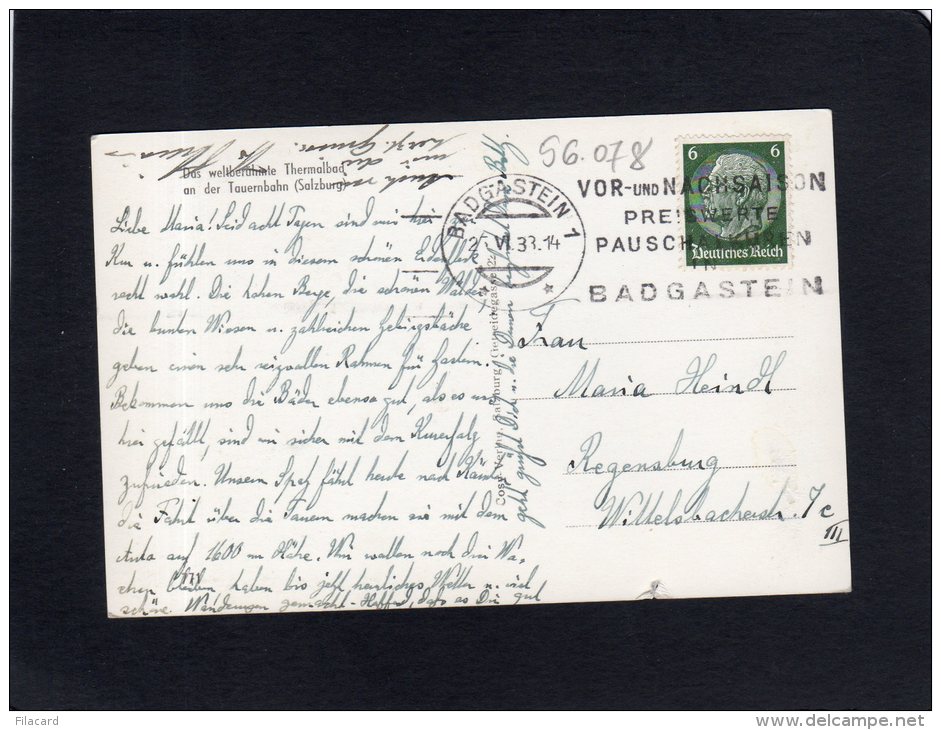 S6.078
Das weltberühmte Thermalbad
an der Tauernbahn (Salzburg)
BADGASTEIN 1
VI.38.14
VOR-UND NACHSAISON
PREISWERTE
PAUSCHALKUREN
IN
BADGASTEIN
6 6
Deutsches Reich
Liebe Maria! Seid acht Tagen sind wir hier
Kur u. fühlen uns in diesem schönen Erdenfleck
recht wohl. Die hohen Berge, die schönen Wälder
die bunten Wiesen u. zahlreichen Gebirgsbäche
geben einen sehr reizvollen Rahmen für Gastein.
Bekommen uns die Bäder ebenso gut, als es uns
hier gefällt, sind wir sicher mit dem Kurerfolg
zufrieden. Unserem fährt heute nach
die Fahrt über die Tauern machen sie mit dem
Auto auf 1600 m Höhe. Wir wollen noch drei Wo-
chen bleiben, haben bis jetzt herrliches Wetter u. viel
schöne Wanderungen gemacht. Hoffend, dass es Dir gut
geht grüsst Dich u. die Deinen
Cosy-Verlag, Salzburg, Getreidegasse 22
Frau
Maria Heindl
Regensburg
Wittelsbacherstr. 7c
III
Filacard
www.delcampe.net